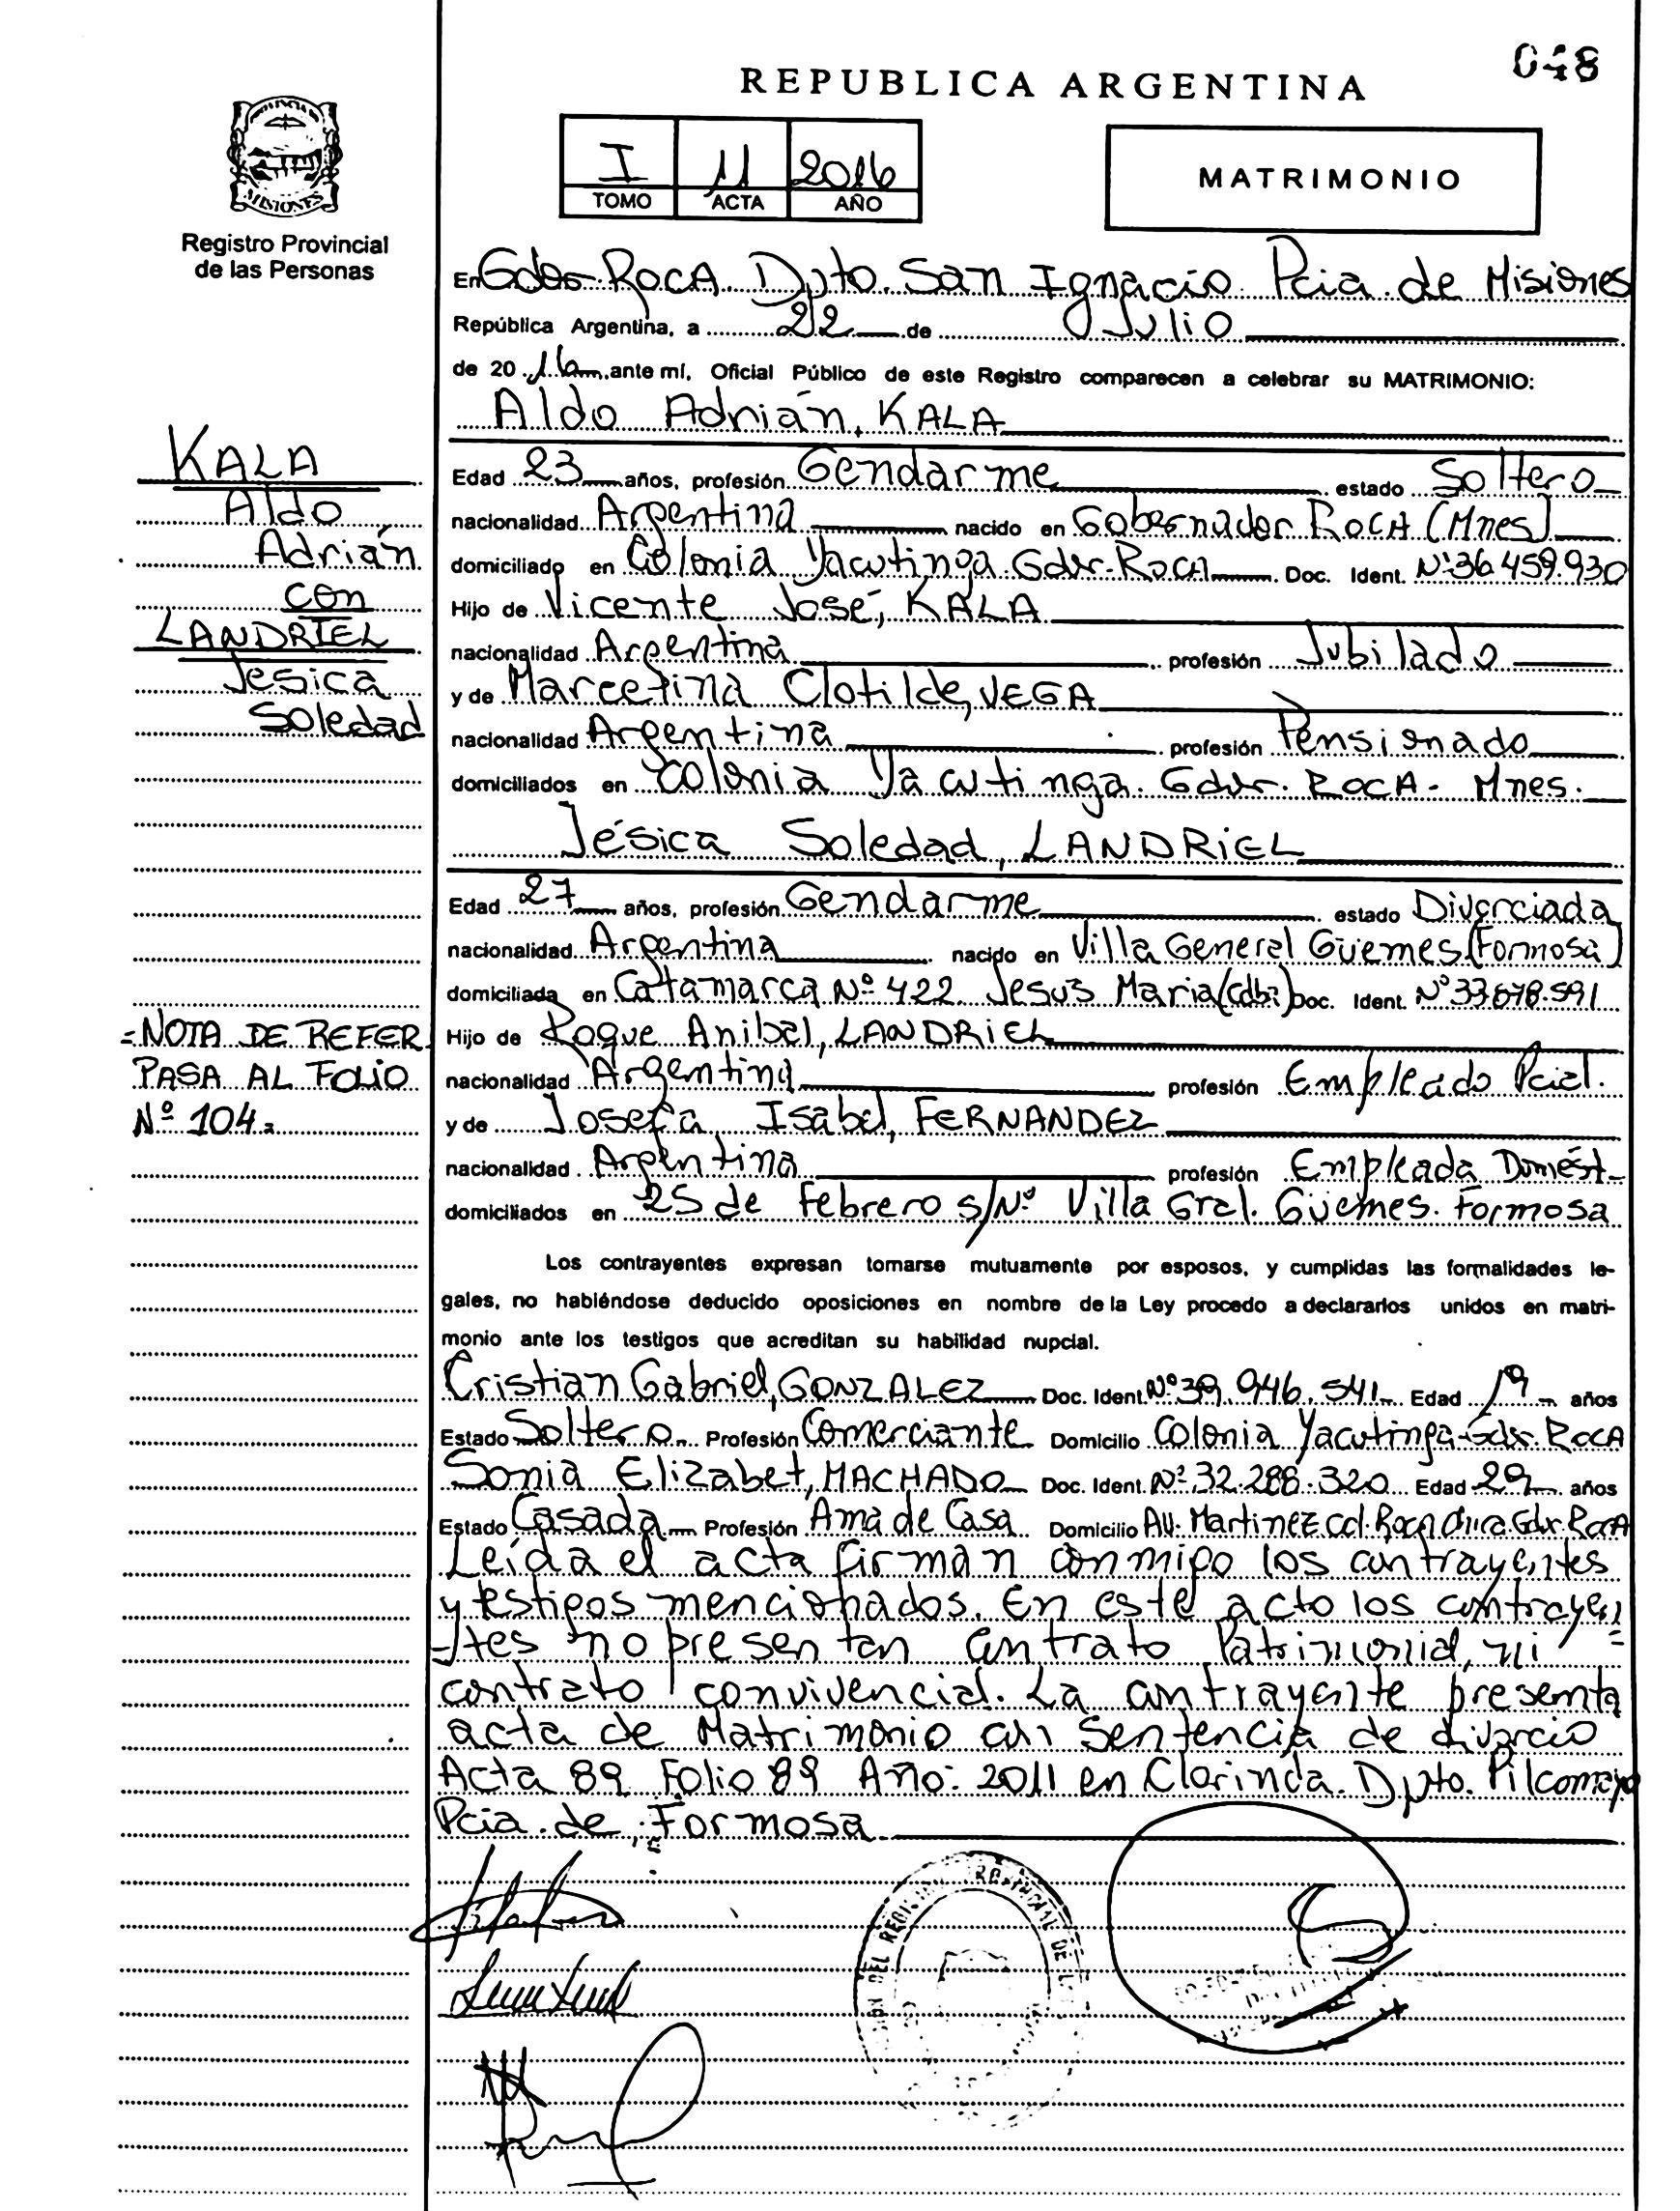 048
REPUBLICA ARGENTINA
PROVINCIA DE
MISIONES
Registro Provincial
de las Personas
I 11 2016
TOMO ACTA AÑO
MATRIMONIO
En Gdor. ROCA. Dpto. San Ignacio Pcia. de Misiones
República Argentina, a 22 de Julio
de 20 16 ante mí, Oficial Público de este Registro comparecen a celebrar su MATRIMONIO:
Aldo Adrián, KALA
KALA
Aldo
Adrián
con
LANDRIEL
Jesica
Soledad
Edad 23 años, profesión Gendarme estado Soltero
nacionalidad Argentina nacido en Gobernador ROCA (Mnes)
domiciliado en Colonia Yacutinga. Gdor. ROCA Doc. Ident. Nº 36.459.930
Hijo de Vicente José, KALA
nacionalidad Argentina profesión Jubilado
y de Marcelina Clotilde, VEGA
nacionalidad Argentina profesión Pensionado
domiciliados en Colonia Yacutinga. Gdor. ROCA - Mnes.
Jésica Soledad, LANDRIEL
Edad 27 años, profesión Gendarme estado Divorciada
nacionalidad Argentina nacido en Villa General Güemes (Formosa)
domiciliada en Catamarca Nº 422 Jesus Maria (Cdba) Doc. Ident. Nº 33.678.591
=NOTA DE REFER
PASA AL FOLIO
Nº 104=
Hijo de Roque Anibal, LANDRIEL
nacionalidad Argentina profesión Empleado Pcial.
y de Josefa Isabel, FERNANDEZ
nacionalidad Argentina profesión Empleada Domést-
domiciliados en 25 de Febrero s/Nº Villa Gral. Güemes. Formosa
Los contrayentes expresan tomarse mutuamente por esposos, y cumplidas las formalidades le-
gales, no habiéndose deducido oposiciones en nombre de la Ley procedo a declararlos unidos en matri-
monio ante los testigos que acreditan su habilidad nupcial.
Cristian Gabriel, GONZALEZ Doc. Ident. Nº 39.946.541 Edad 19 años
Estado Soltero Profesión Comerciante Domicilio Colonia Yacutinga-Gdor. ROCA
Sonia Elizabet, MACHADO Doc. Ident. Nº 32.288.320 Edad 29 años
Estado Casada Profesión Ama de Casa Domicilio Av. Martinez Gdor. Roca
Leída el acta firman conmigo los contrayentes
y testigos mencionados. En este acto los contrayen
-tes no presentan contrato Patrimonial, ni
contrato convivencial. La contrayente presenta
acta de Matrimonio con Sentencia de divorcio
Acta 89 Folio 89 Año: 2011 en Clorinda. Dpto. Pilcomayo
Pcia. de Formosa
DEL REGISTRO PROVINCIAL DE L